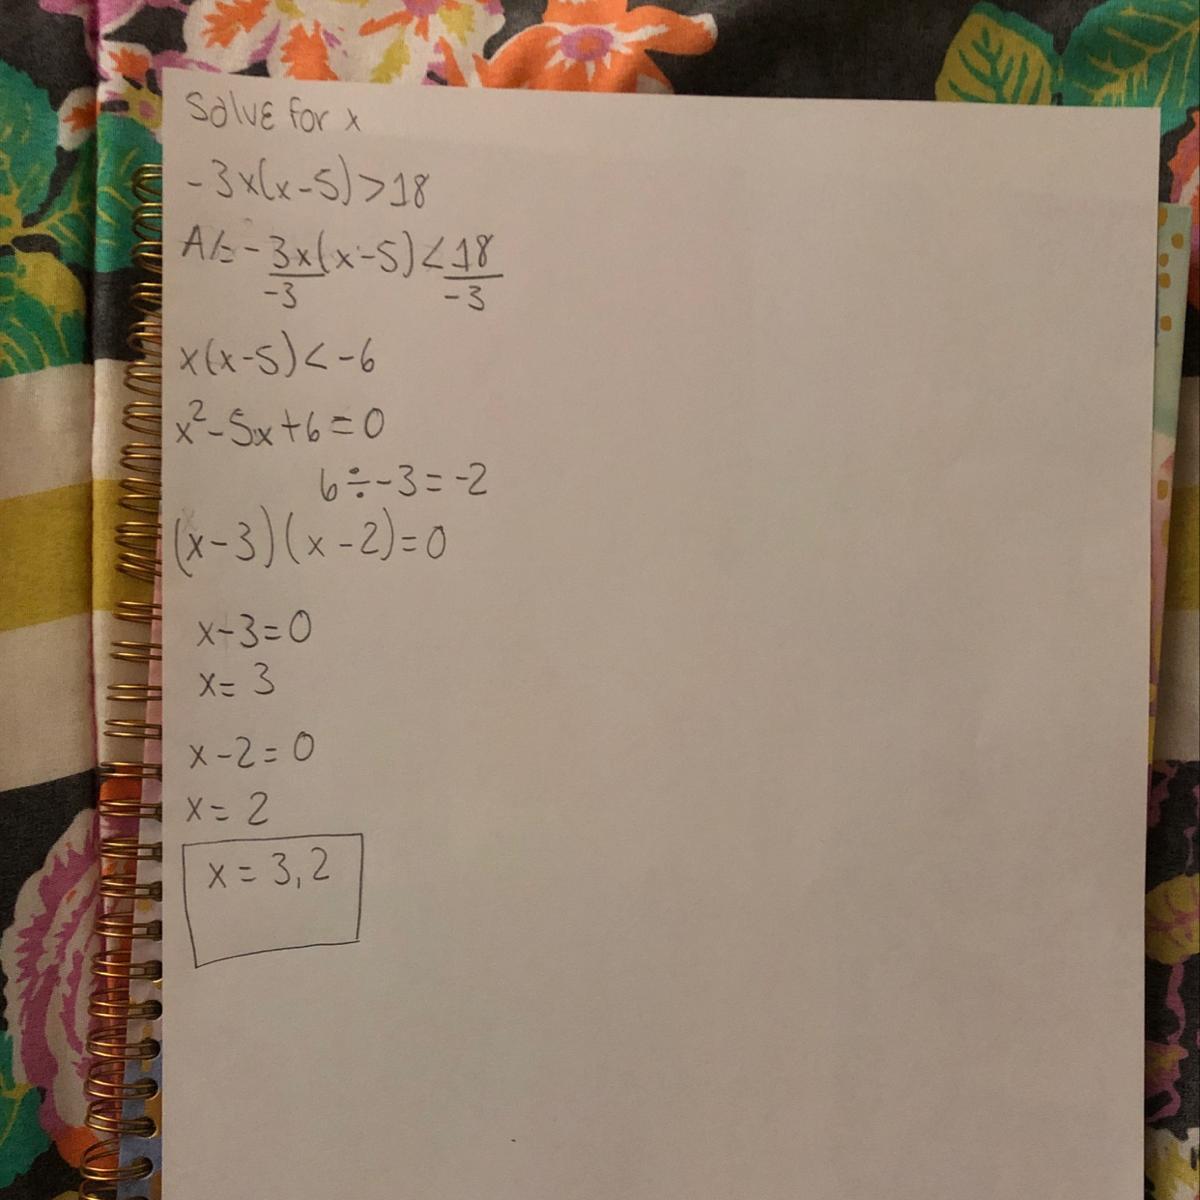 Solve for x
-3x(x-5)>18
A/= -3x(x-5)<18
-3 -3
x(x-5)<-6
x²-5x+6=0
6÷-3=-2
(x-3)(x-2)=0
x-3=0
x=3
x-2=0
x=2
x=3,2